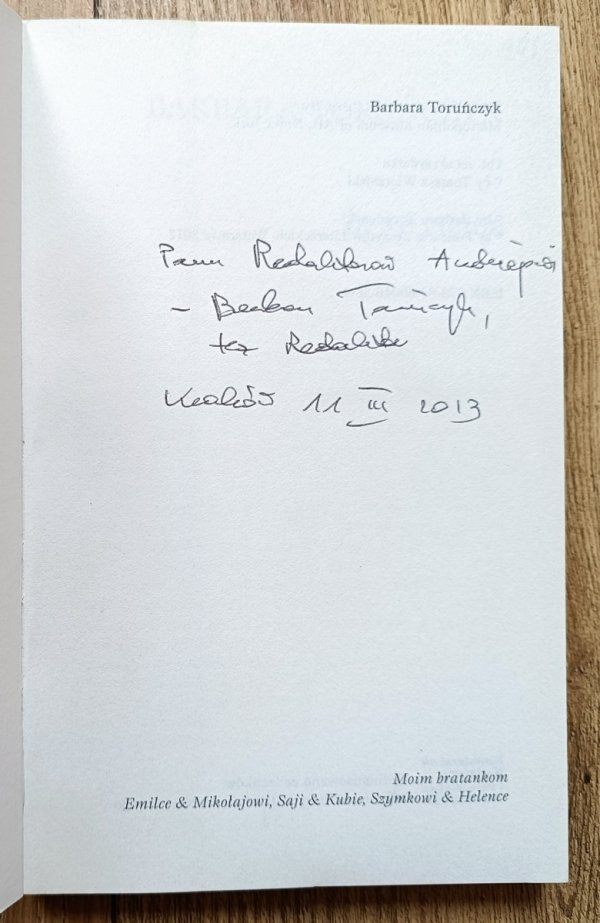 Barbara Toruńczyk
Panu Redaktorowi Andrzejowi
- Barbara Toruńczyk,
też Redaktor
Kraków 11 III 2013
Moim bratankom
Emilce & Mikołajowi, Saji & Kubie, Szymkowi & Helence